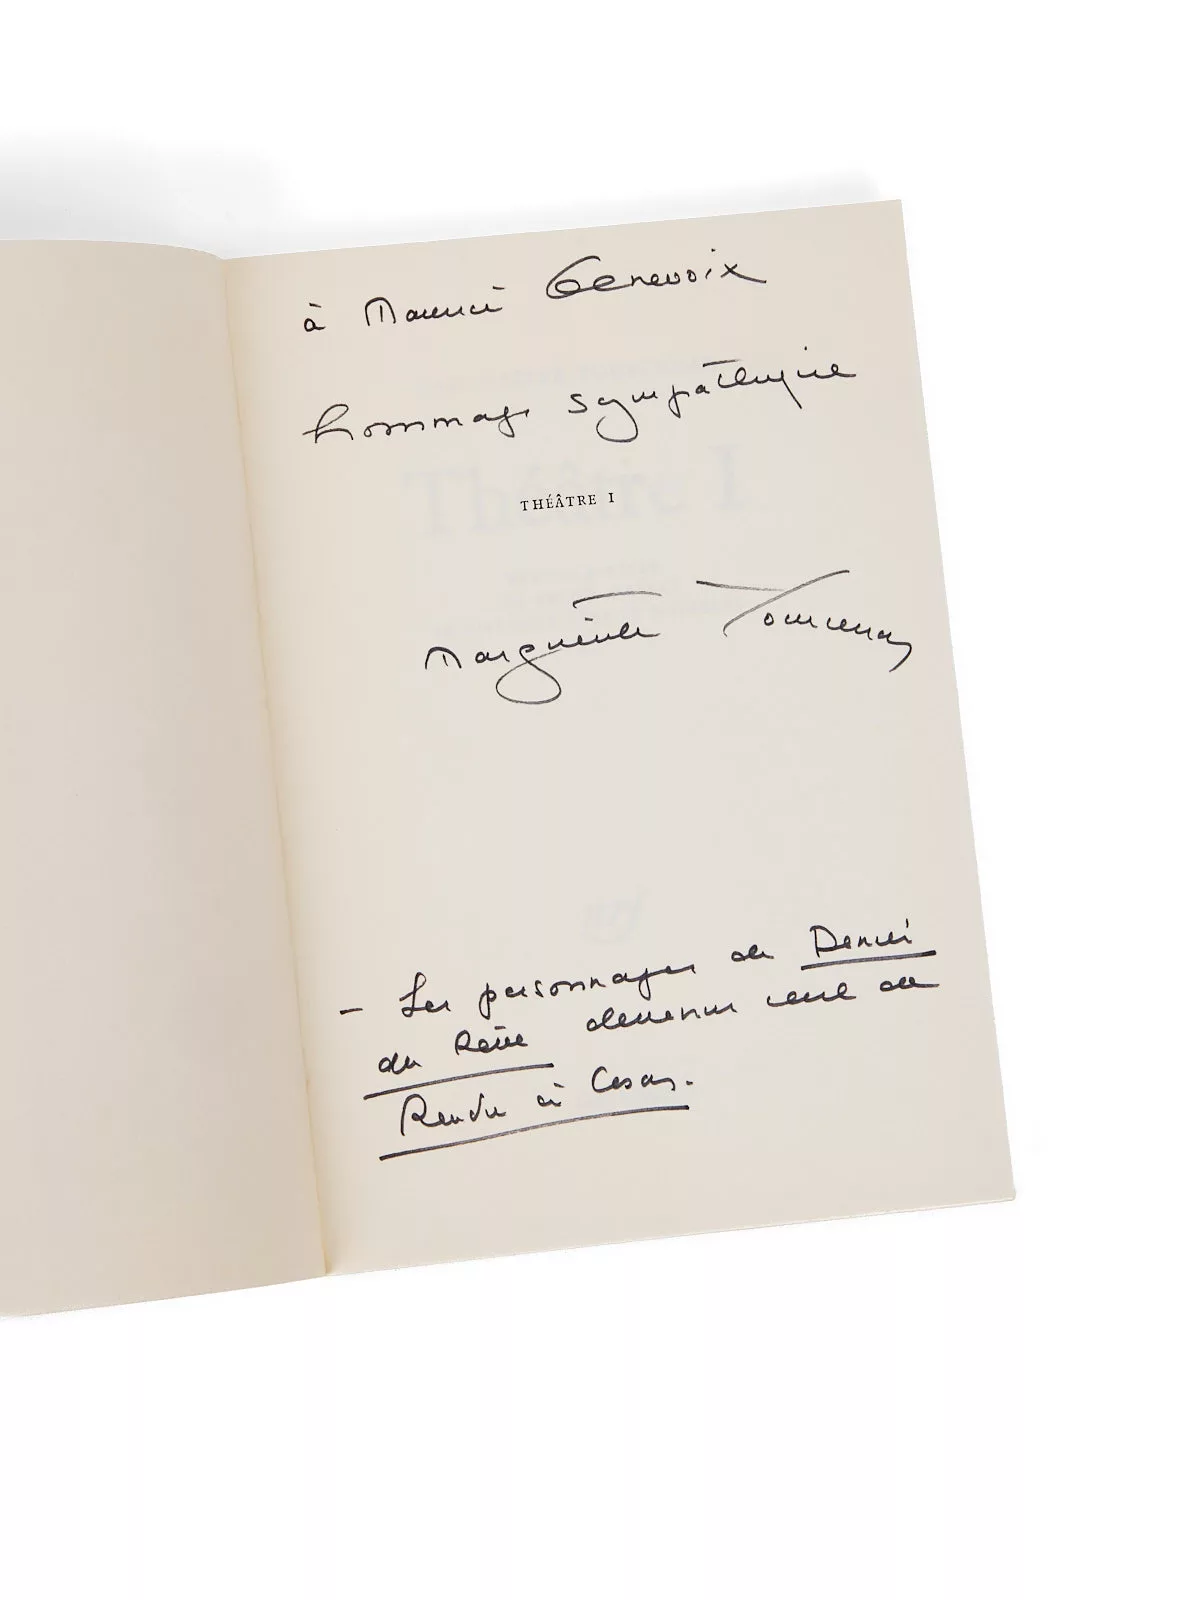 à Maurice Genevoix
hommage sympathique
THÉÂTRE I
Marguerite Yourcenar
- Les personnages de Denier
du Rêve devenus ceux de
Rendre à César.